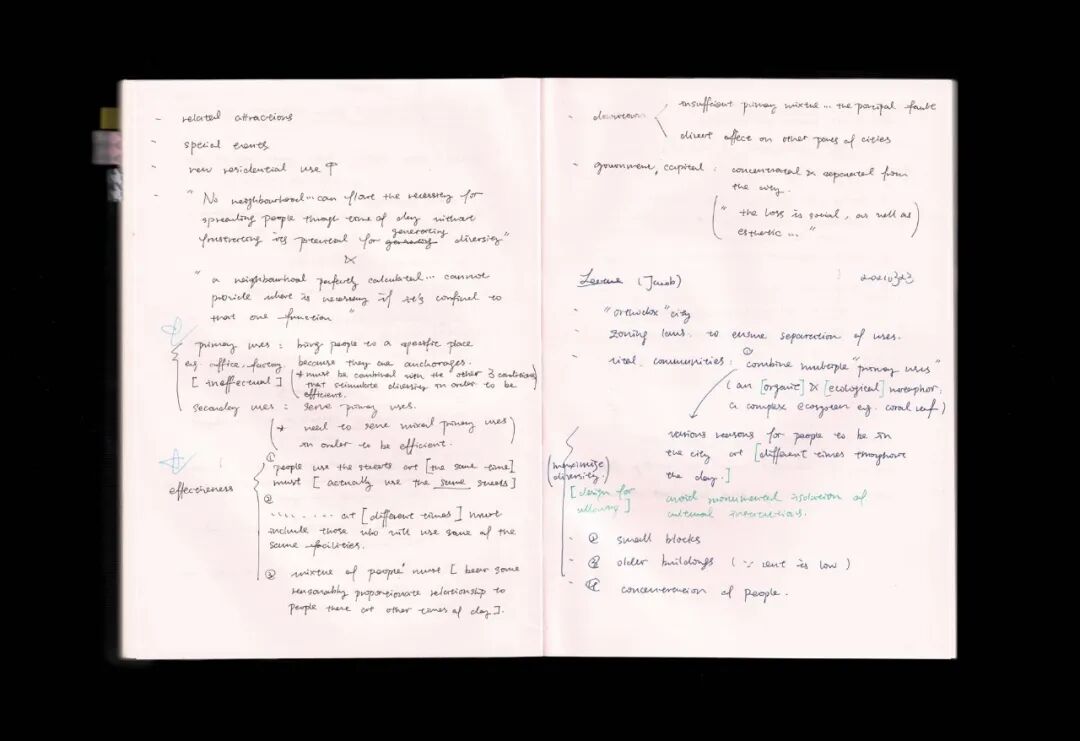 - related attractions
- special events
- new residential use ↑
- "No neighbourhood... can flout the necessity for
spreading people through time of day without
frustrating its potential for generating diversity"
&
"a neighbourhood perfectly calculated... cannot
provide where is necessary if it's confined to
that one function"
primary uses : bring people to a specific place
e.g. office, factory because they are anchorages.
[ineffectual] (* must be combined with the other 3 conditions
that stimulate diversity in order to be
efficient.)
secondary uses : serve primary uses.
(* need to serve mixed primary uses
in order to be efficient.)
effectiveness
① people use the streets at [the same time]
must [actually use the same streets]
②
........ at [different times] must
include those who will use some of the
same facilities.
③ mixture of people must [bear some
reasonably proportionate relationship to
people there at other times of day].
- downtown
insufficient primary mixture... the principal fault
direct effect on other parts of cities
- government, capital : concentrated & separated from
the city.
("the loss is social, as well as
esthetic...")
Lecture (Jacob) 20210323
- "orthodox" city
- zoning laws. to ensure separation of uses.
- vital communities : ① combine multiple "primary uses"
(an [organic] & [ecological] metaphor,
a complex ecosystem e.g. coral reef)
various reasons for people to be in
the city at [different times throughout
the day.]
(maximise
diversity.)
[design for
allowing]
avoid monumental isolation of
cultural institutions.
- ② small blocks
- ③ older buildings (∵ rent is low)
- ④ concentration of people.